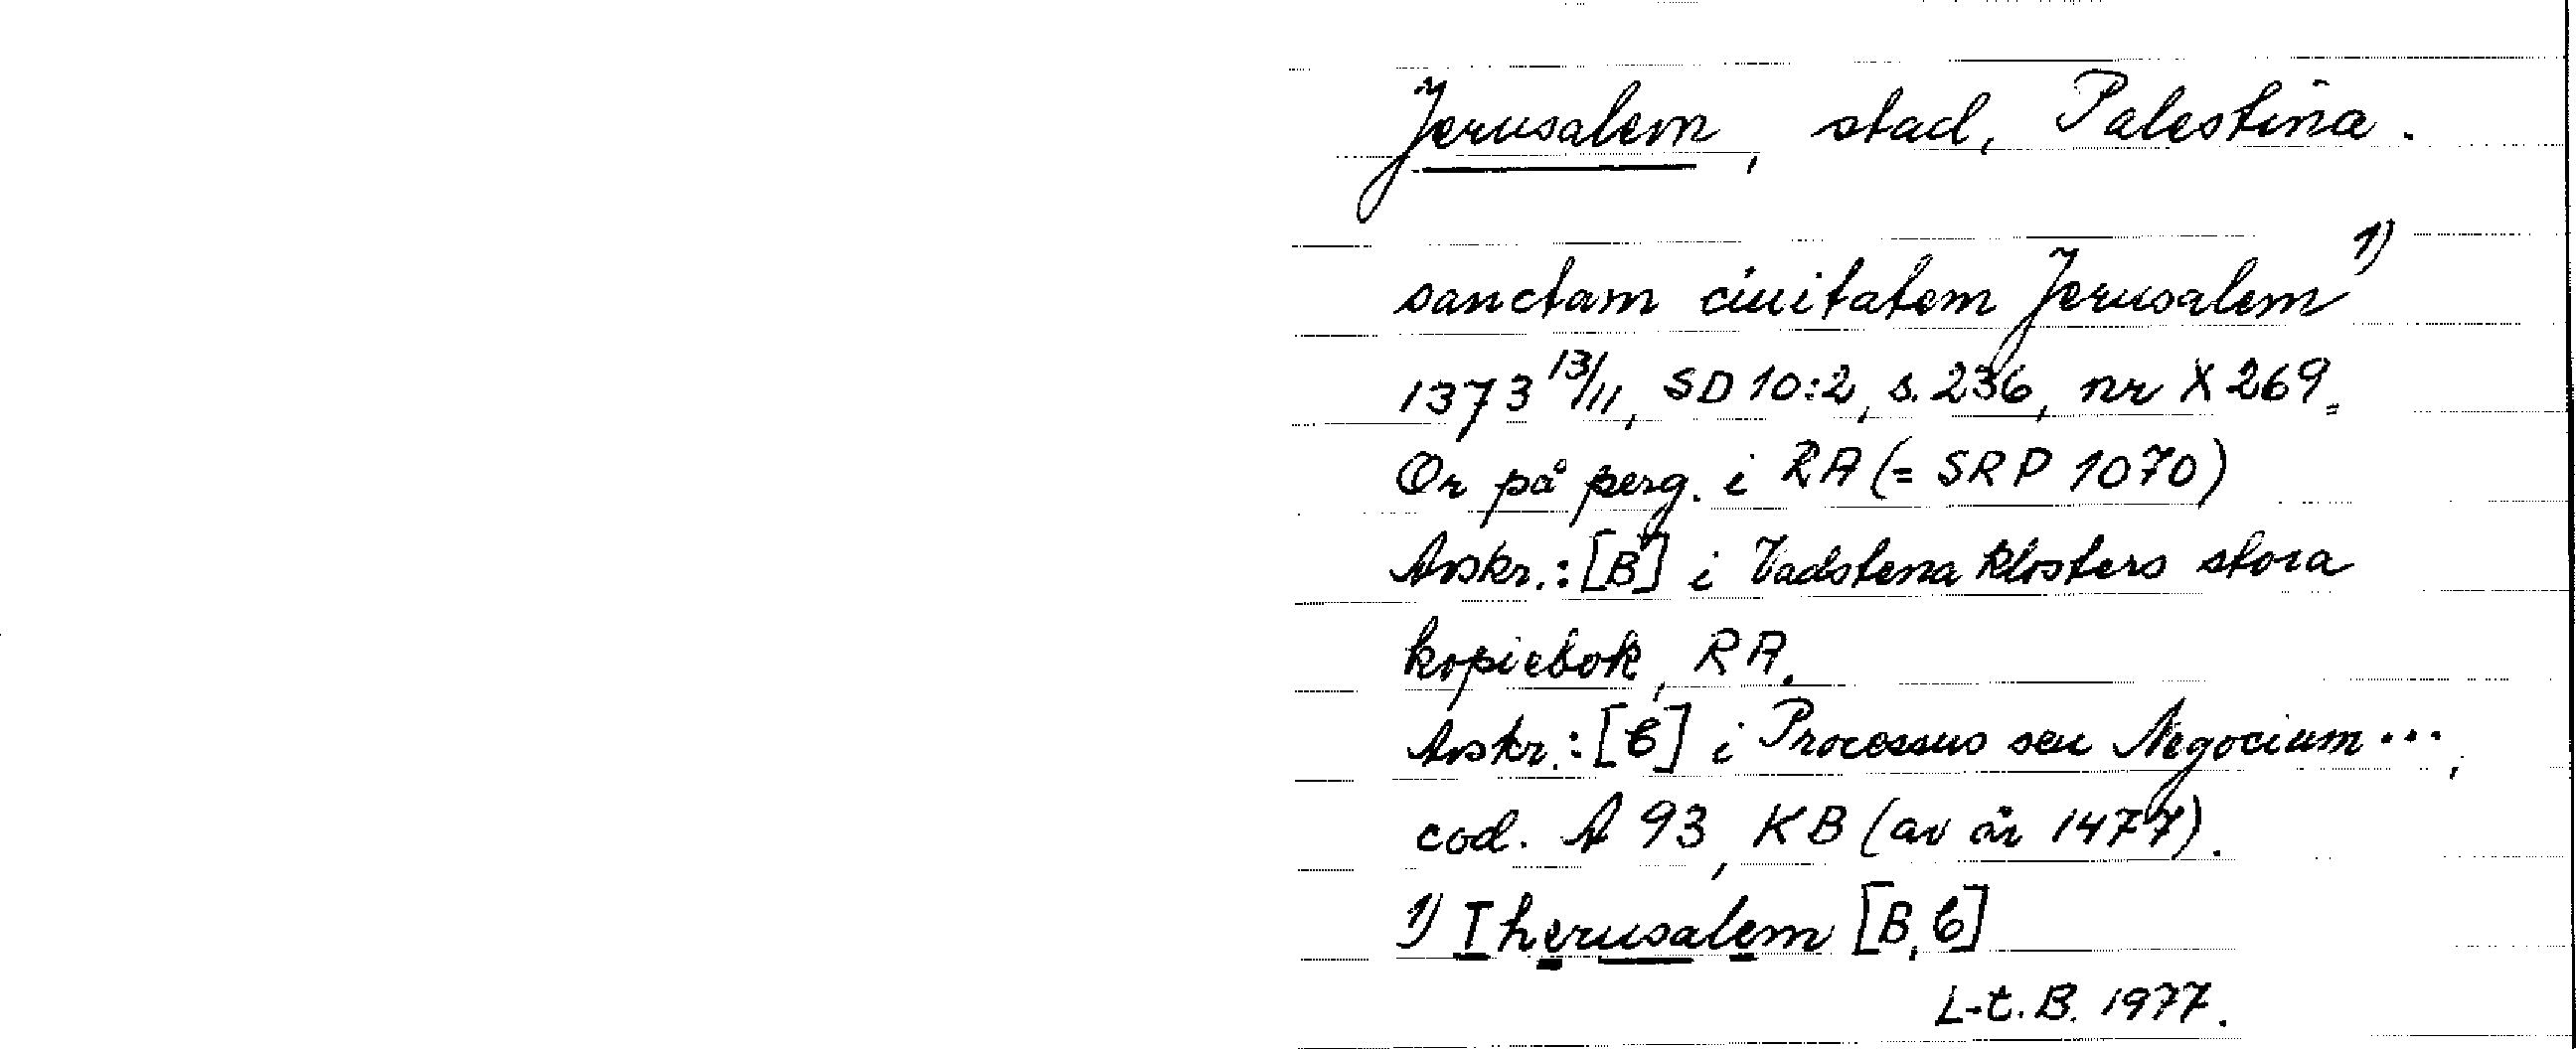 Jerusalem, stad, Palestina.
sanctam ciuitatem Jerusalem 1)
1373 13/11, SD 10:2, s. 236, nr X 269.
Or på perg. i RA (= SRP 1070)
Avskr.: [B] i Vadstena klosters stora
kopiebok, RA.
Avskr.: [C] i Processus seu Negocium...,
cod. A 93, KB (av år 1477).
1) Iherusalem [B, C]
L-t. B. 1977.